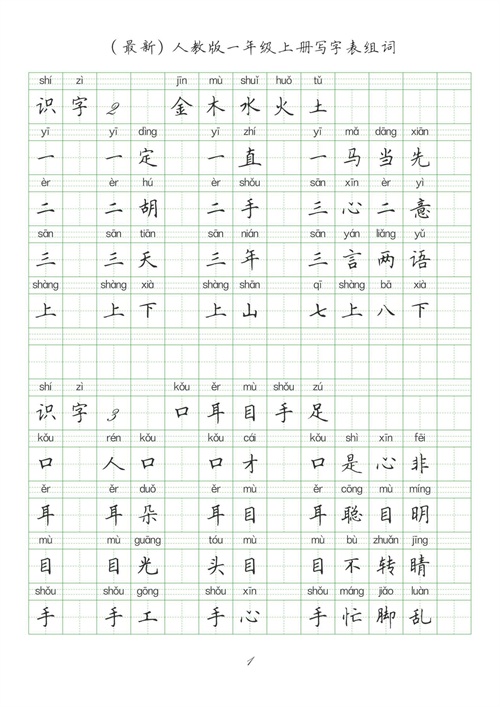 （最新）人教版一年级上册写字表组词
shí zì jīn mù shuǐ huǒ tǔ
识字2 金木水火土
yī yī dìng yī zhí yī mǎ dāng xiān
一 一定 一直 一马当先
èr èr hú èr shǒu sān xīn èr yì
二 二胡 二手 三心二意
sān sān tiān sān nián sān yán liǎng yǔ
三 三天 三年 三言两语
shàng shàng xià shàng shān qī shàng bā xià
上 上下 上山 七上八下
shí zì kǒu ěr mù shǒu zú
识字3 口耳目手足
kǒu rén kǒu kǒu cái kǒu shì xīn fēi
口 人口 口才 口是心非
ěr ěr duǒ ěr mù ěr cōng mù míng
耳 耳朵 耳目 耳聪目明
mù mù guāng tóu mù mù bù zhuǎn jīng
目 目光 头目 目不转睛
shǒu shǒu gōng shǒu xīn shǒu máng jiǎo luàn
手 手工 手心 手忙脚乱
1